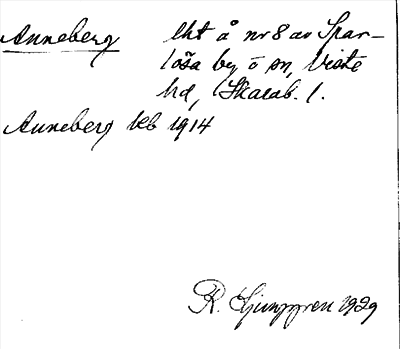 Anneberg lht å nr 8 av Spar-
lösa by o sn, Viste
hd, Skarab. l.
Anneberg kb 1914
R. Ljunggren 1929